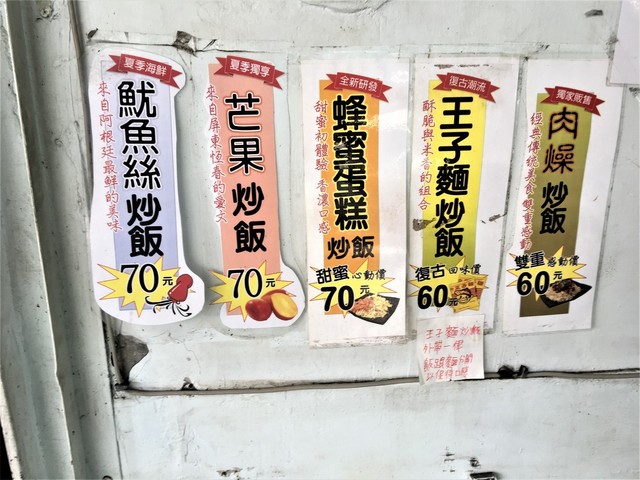 夏季海鮮
魷魚絲炒飯
來自阿根廷最鮮的美味
70元
夏季獨享
芒果炒飯
來自屏東恆春的愛文
70元
全新研發
蜂蜜蛋糕炒飯
甜蜜初體驗 香濃口感
甜蜜心動價
70元
復古潮流
王子麵炒飯
酥脆與米香的組合
復古回味價
60元
獨家販售
肉燥炒飯
經典傳統美食 雙重感動
雙重感動價
60元
王子麵炒飯
飯跟麵分開